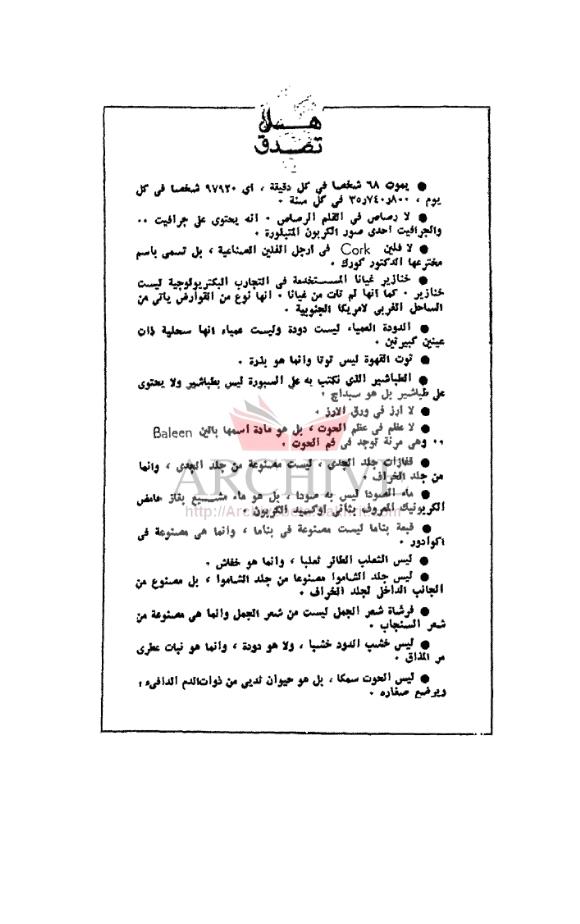 هل
تصدق
● يموت ٦٨ شخصا في كل دقيقة ، اى ٩٧٩٢٠ شخصا في كل
يوم ، ٣٥ر٧٤٠ر٨٠٠ في كل سنة ٠
● لا رصاص في القلم الرصاص ٠ انه يحتوى على جرافيت ٠٠
والجرافيت احدى صور الكربون المتبلورة ٠
● لا فلين Cork في ارجل الفلين الصناعية ، بل تسمى باسم
مخترعها الدكتور كورك ٠
● خنازير غيانا المستخدمة في التجارب البكتريولوجية ليست
خنازير ٠ كما انها لم تات من غيانا ٠ انها نوع من القوارض ياتى من
الساحل الغربى لامريكا الجنوبية ٠
● الدودة العمياء ليست دودة وليست عمياء انها سحلية ذات
عينين كبيرتين ٠
● توت القهوة ليس توتا وانما هو بذرة ٠
● الطباشير الذى نكتب به على السبورة ليس بطباشير ولا يحتوى
على طباشير بل هو سبداج ٠
● لا ارز في ورق الارز ٠
● لا عظم في عظم الحوت ، بل هو مادة اسمها بالين Baleen
٠٠ وهى مرنة توجد فى فم الحوت ٠
● قفازات جلد الجدى ، ليست مصنوعة من جلد الجدى ، وانما
من جلد الخراف ٠
● ماء الصودا ليس به صودا ، بل هو ماء مشبع بغاز حامض
الكربونيك المعروف بثانى اوكسيد الكربون ٠
● قبعة بناما ليست مصنوعة فى بناما ، وانما هى مصنوعة فى
اكوادور ٠
● ليس الثعلب الطائر ثعلبا ، وانما هو خفاش ٠
● ليس جلد الشاموا مصنوعا من جلد الشاموا ، بل مصنوع من
الجانب الداخل لجلد الخراف ٠
● فرشاة شعر الجمل ليست من شعر الجمل وانما هى مصنوعة من
شعر السنجاب ٠
● ليس خشب الدود خشبا ، ولا هو دودة ، وانما هو نبات عطرى
مر المذاق ٠
● ليس الحوت سمكا ، بل هو حيوان ثديى من ذوات الدم الدافىء ،
ويرضع صغاره ٠
ARCHIVE